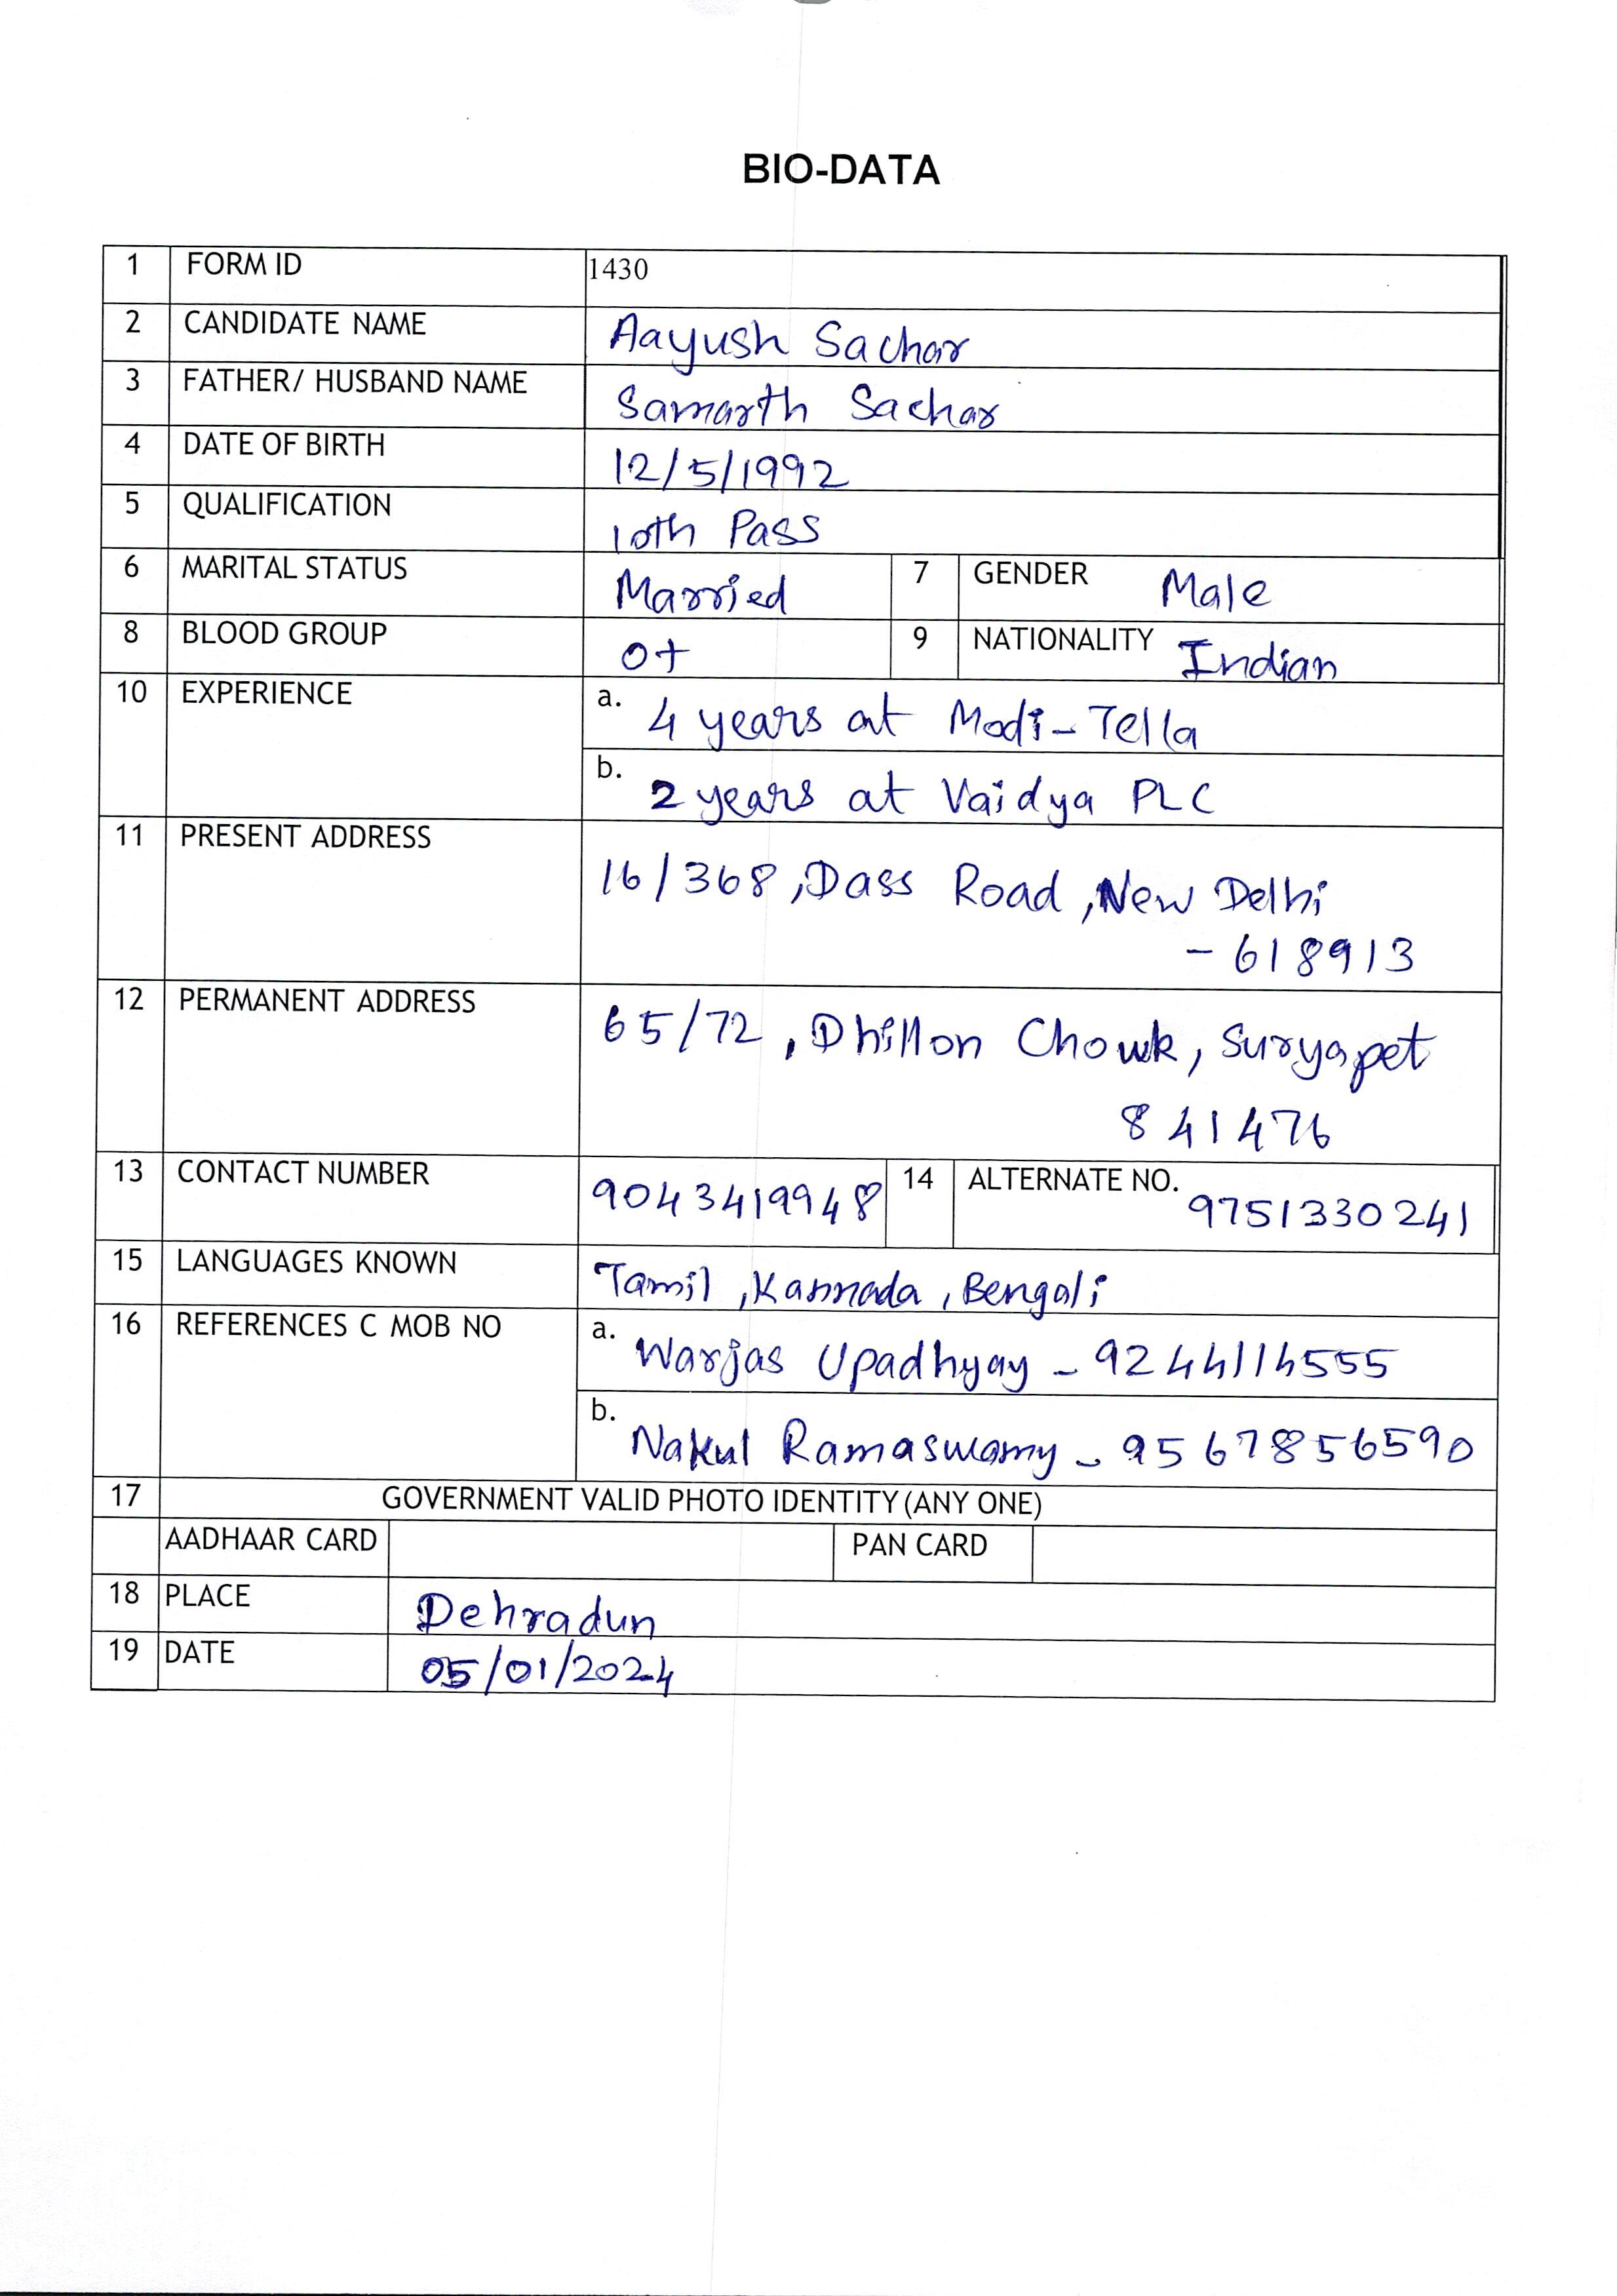 BIO-DATA
1 FORM ID 1430
2 CANDIDATE NAME Aayush Sachar
3 FATHER/ HUSBAND NAME Samarth Sachar
4 DATE OF BIRTH 12/5/1992
5 QUALIFICATION 10th Pass
6 MARITAL STATUS Married 7 GENDER Male
8 BLOOD GROUP O+ 9 NATIONALITY Indian
10 EXPERIENCE a. 4 years at Modi-Tella
b. 2 years at Vaidya PLC
11 PRESENT ADDRESS 16/368, Dass Road, New Delhi
- 618913
12 PERMANENT ADDRESS 65/72, Dhillon Chowk, Suryapet
841476
13 CONTACT NUMBER 9043419948 14 ALTERNATE NO. 9751330241
15 LANGUAGES KNOWN Tamil, Kannada, Bengali
16 REFERENCES C MOB NO a. Warjas Upadhyay - 9244114555
b. Nakul Ramaswamy - 9567856590
17 GOVERNMENT VALID PHOTO IDENTITY (ANY ONE)
AADHAAR CARD PAN CARD
18 PLACE Dehradun
19 DATE 05/01/2024